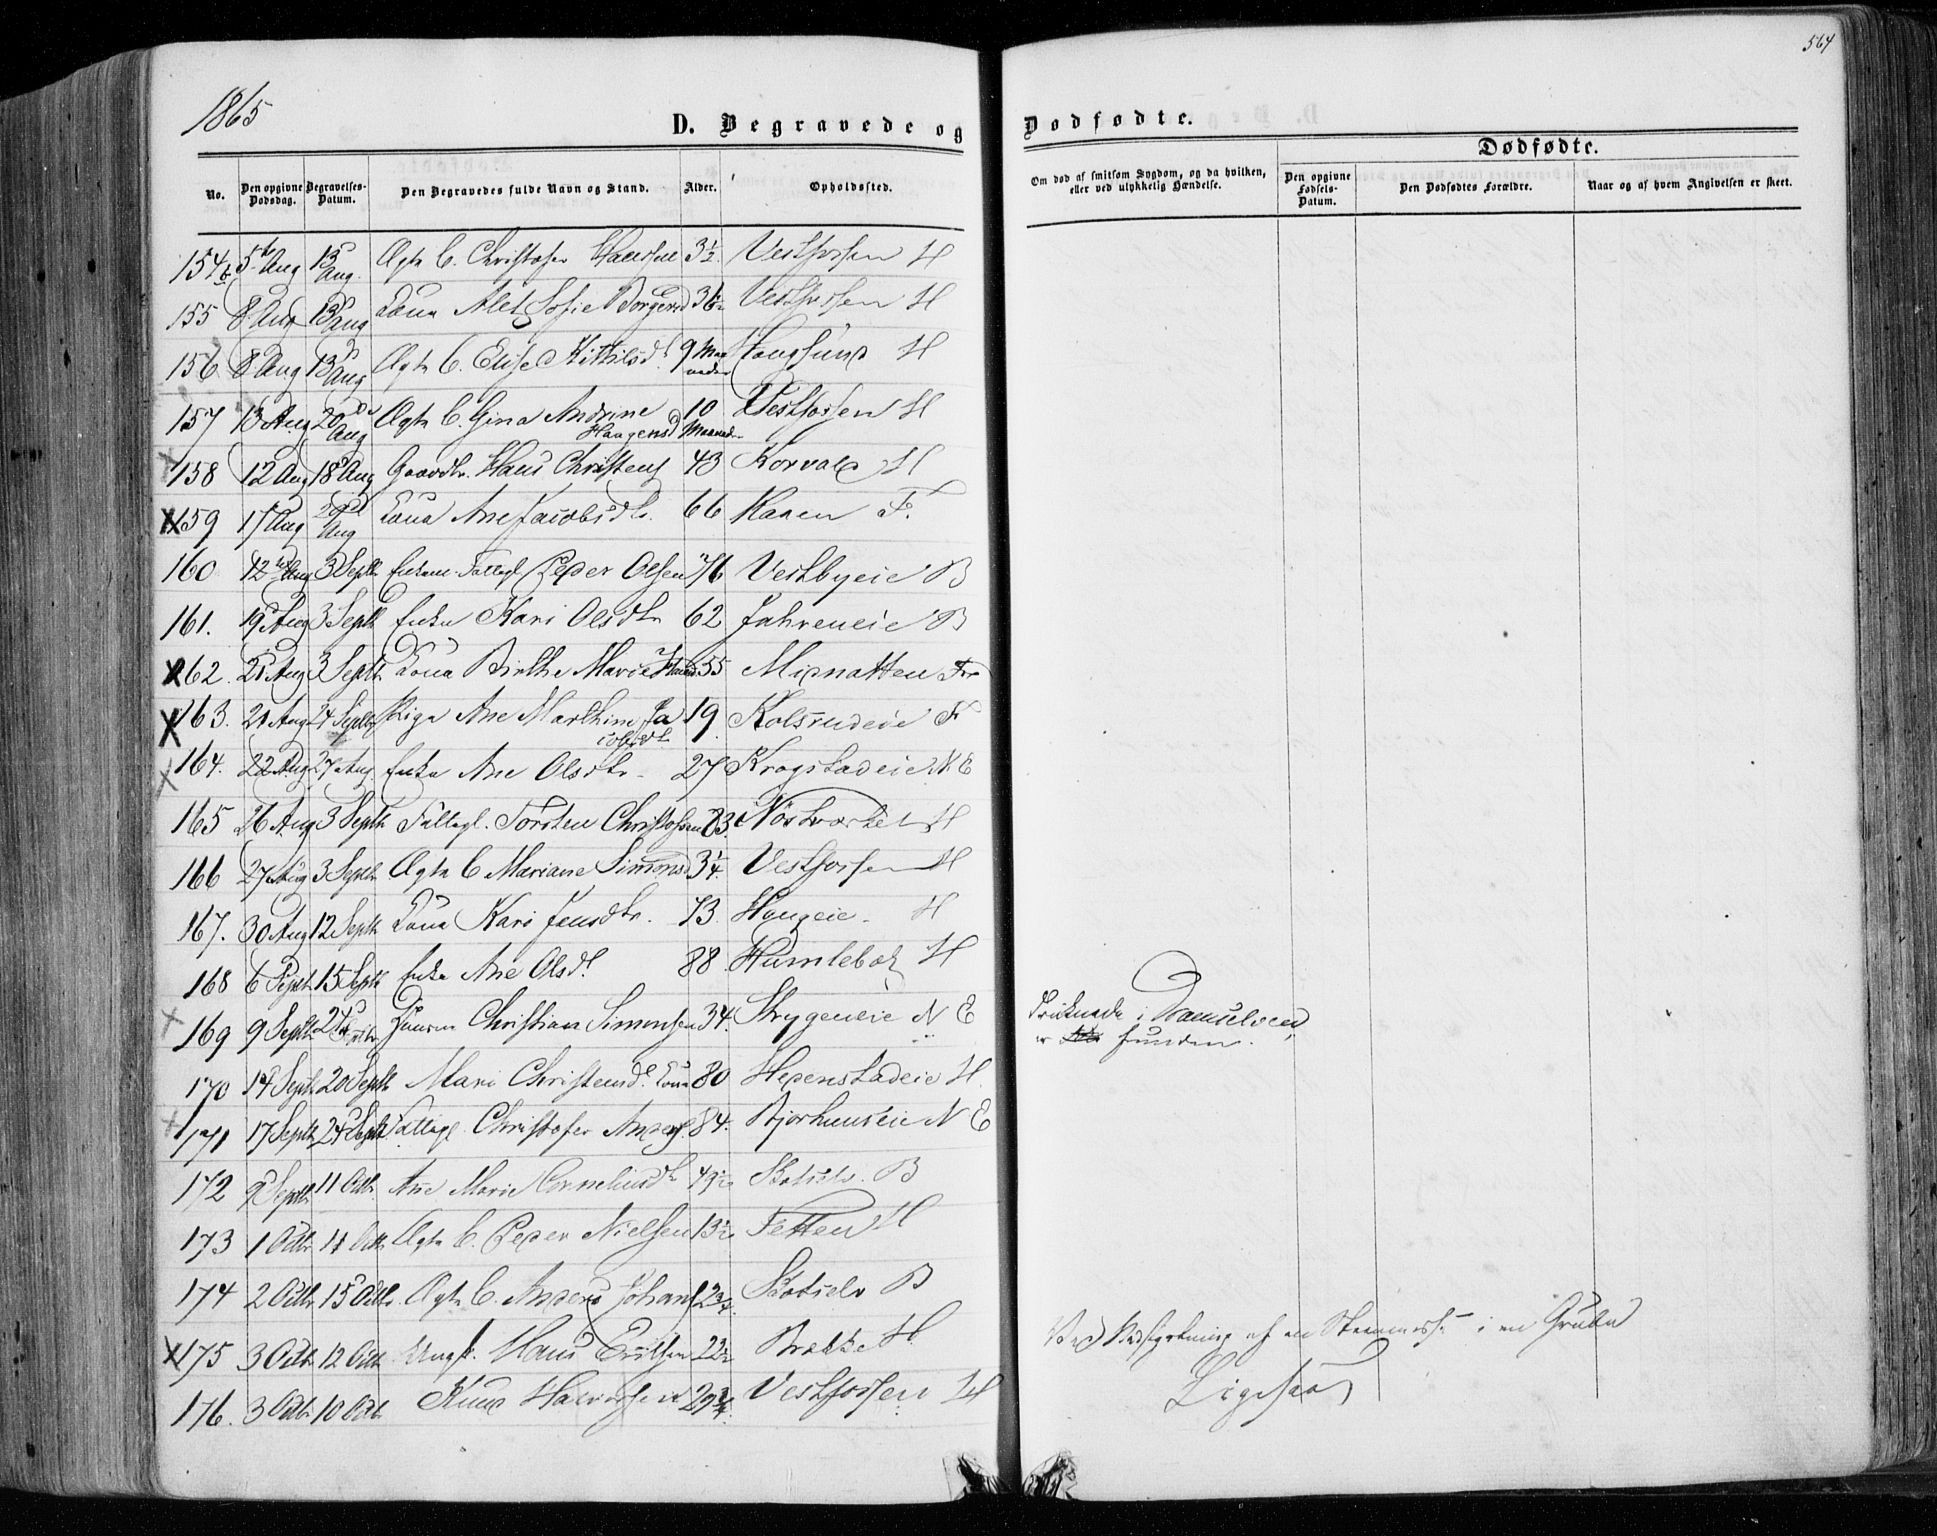 564
1865
D. Begravede og Dødfødte.
Dødfødte.
No. Den opgivne Dødsdag. Begravelses-Datum. Den Begravedes fulde Navn og Stand. Alder. Opholdssted. Om død af smitsom Sygdom, og da hvilken, eller ved ulykkelig Hændelse. Den opgivne Fødsels-Datum. Den Dødfødtes Forældre. Naar og af hvem Angivelsen er skeet.
154 b 5te Aug 13 Aug. Ægte B. Christofer 3½ Vestfossen H
155 8 Aug 13 Aug Kona Alet Sofie Borgersd Vestfossen H
156 8 Aug 13 Aug Ægte B. Elise Kittilsd. 9 Maaneder Hougsund H
157 13 Aug 20 Aug Ægte B. Gina Andrine Haagensd 10 Maaneder Vestfossen H
158 12 Aug 18 Aug Gaardbr. Hans Christens 43 Korvald H
159 17 Aug Aug Kona Ane Jacobsdtr. 66 Kanen F.
160 12 Aug 3 Septb Enkem. Fattigl. Peder Olsen 76 Vestbyeie B
161. 19 Aug 3 Septb Enke Kari Olsdtr 62 Jahreneie B
162. 21 Aug 3 Septb Kona Birthe Marie 55 Midnatten F
163. 21 Aug 24 Septb Pige Ane Marthine Jacobsdtr 19. Kolsrudeie F
164. 22 Aug 27 Aug. Enke Ane Olsdtr 27 Krogstadeie N E
165 26 Aug 3 Septb Fattigl. Torsten Christofersen 83. H
166 27 Aug 3 Septb Ægte B Mariane Simonsd 3¼ Vestfossen H
167. 30 Aug 12 Septb Kona Kari Jensdtr. 73. Haugeie H
168 6 Septb 15 Septb Enke Ane Olsd. 88. Humlebæk H
169 9 Septb 24 Christian Simonsen 34. Strygeneie N E Druknede i Ramselven, er funden.
170 14 Septb 20 Septb Mari Christensd. Kona 80 Hedenstadeie H.
171 17 Septb 24 Septb Fattigl. Christofer Anders. 84. Bjorhuuseie N E
172 9 Septb 11 Octb. Ane Marie Corneliusdtr 49½ Skotselv. B
173 1 Octb 11 Octb Ægte B. Peder Nielsen 13½ Fetten H
174 2 Octb 15 Octb. Ægte B. Anders Johans 2¾. Skotselv B
175 3 Octb 12 Octb. Ungk. Hans 22½ Brække H. Ved Nedstyrtning af en i en Grube
176. 3 Octb 10 Octb Knud Halvorsen 29¾. Vestfossen H Ligesaa